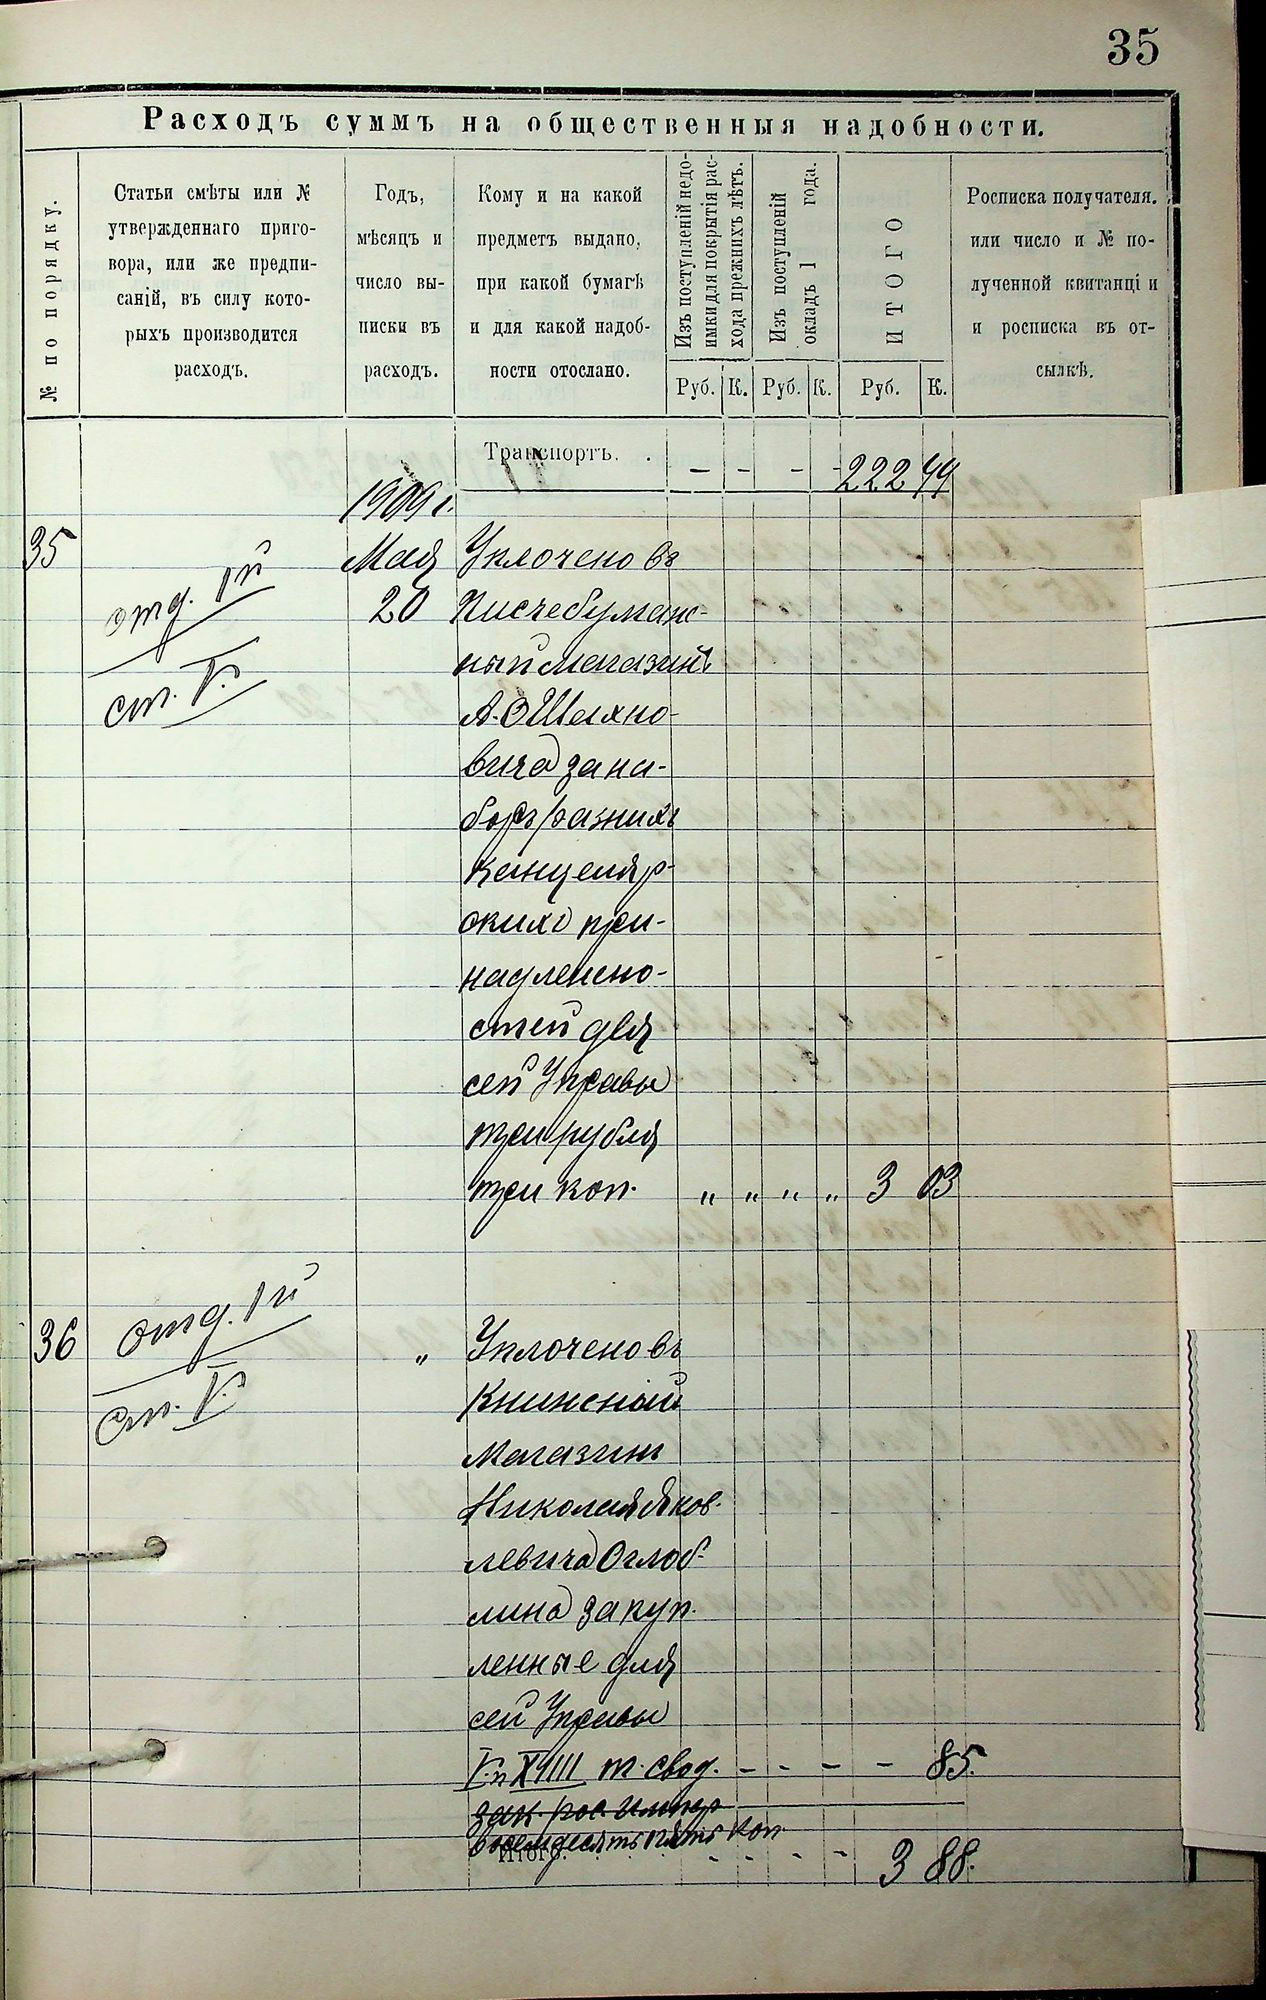 35
Расходъ суммъ на общественныя надобности.
№ по порядку.
Статьи смѣты или №
утвержденнаго приго-
вора, или же предпи-
саній, въ силу кото-
рыхъ производится
расходъ.
Годъ,
мѣсяцъ и
число вы-
писки въ
расходъ.
Кому и на какой
предметъ выдано,
при какой бумагѣ
и для какой надоб-
ности отослано.
Изъ поступленій недо-
имки для покрытія рас-
хода прежнихъ лѣтъ.
Изъ поступленій
окладъ 1 года.
ИТОГО
Росписка получателя.
или число и № по-
лученной квитанціи
и росписка въ от-
сылкѣ.
Руб. К. Руб. К. Руб. К.
Транспортъ. . - - - - 222 44
1909 г.
35 отд. 1й Мая Уплочено въ
20 Писчебумаж-
ный магазинъ
ст. V. А. О Шляхно-
вича за на-
боръ разныхъ
канцеляр-
скихъ при-
надлежно-
стей для
сей Управы
три рубля
три коп. " " " " 3 03
36 отд. 1й " Уплочено въ
ст. V. Книжный
Магазинъ
Николая Яков-
левича Оглоб-
лина за куп-
ленные для
сей Управы
V. и XVIII т. свод. - - - - 85.
зак. рос. импер
восемдесятъ пять коп.
Итого. . . - - - - 3 88.